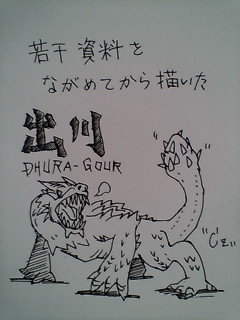 若干資料を
ながめてから描いた
出川
DHURA-GOUR